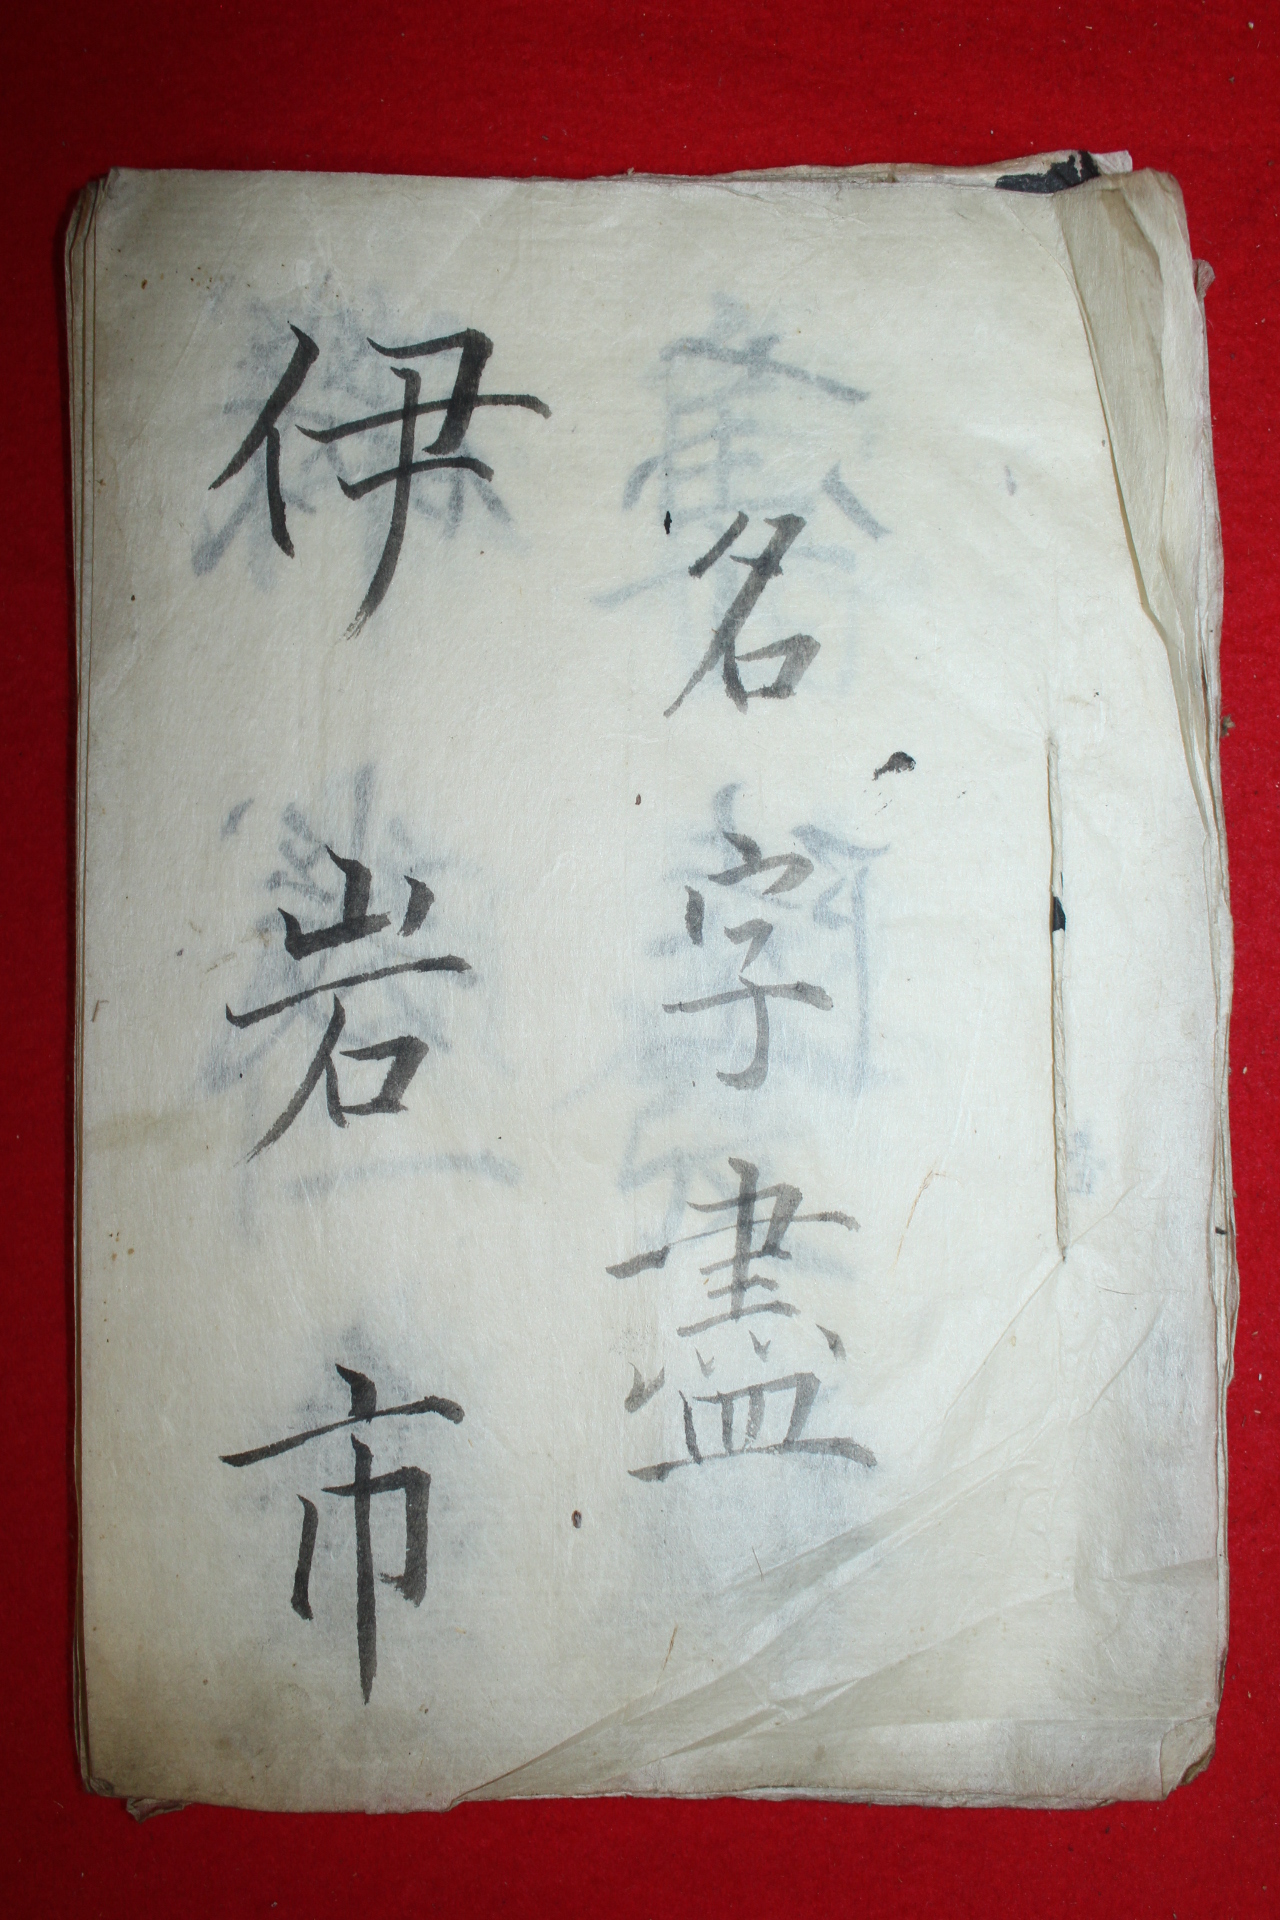 名字盡
伊岩市